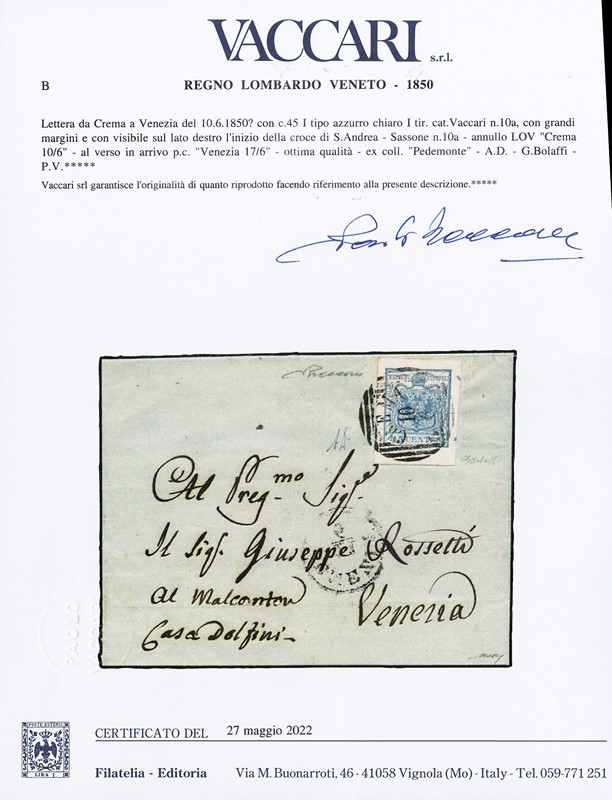 VACCARI s.r.l.
B REGNO LOMBARDO VENETO - 1850
Lettera da Crema a Venezia del 10.6.1850? con c.45 I tipo azzurro chiaro I tir. cat.Vaccari n.10a, con grandi
margini e con visibile sul lato destro l'inizio della croce di S.Andrea - Sassone n.10a - annullo LOV "Crema
10/6" - al verso in arrivo p.c. "Venezia 17/6" - ottima qualità - ex coll. "Pedemonte" - A.D. - G.Bolaffi -
P.V.*****
Vaccari srl garantisce l'originalità di quanto riprodotto facendo riferimento alla presente descrizione.*****
CENT
Al Preg.mo Sigr.
Il Sigr. Giuseppe Rossetti
Al Malcanton Venezia
Casa Dolfini
PAOLO
VACCARI
POSTE ESTENSI
LIRA 1
CERTIFICATO DEL 27 maggio 2022
Filatelia - Editoria Via M. Buonarroti, 46 - 41058 Vignola (Mo) - Italy - Tel. 059-771 251